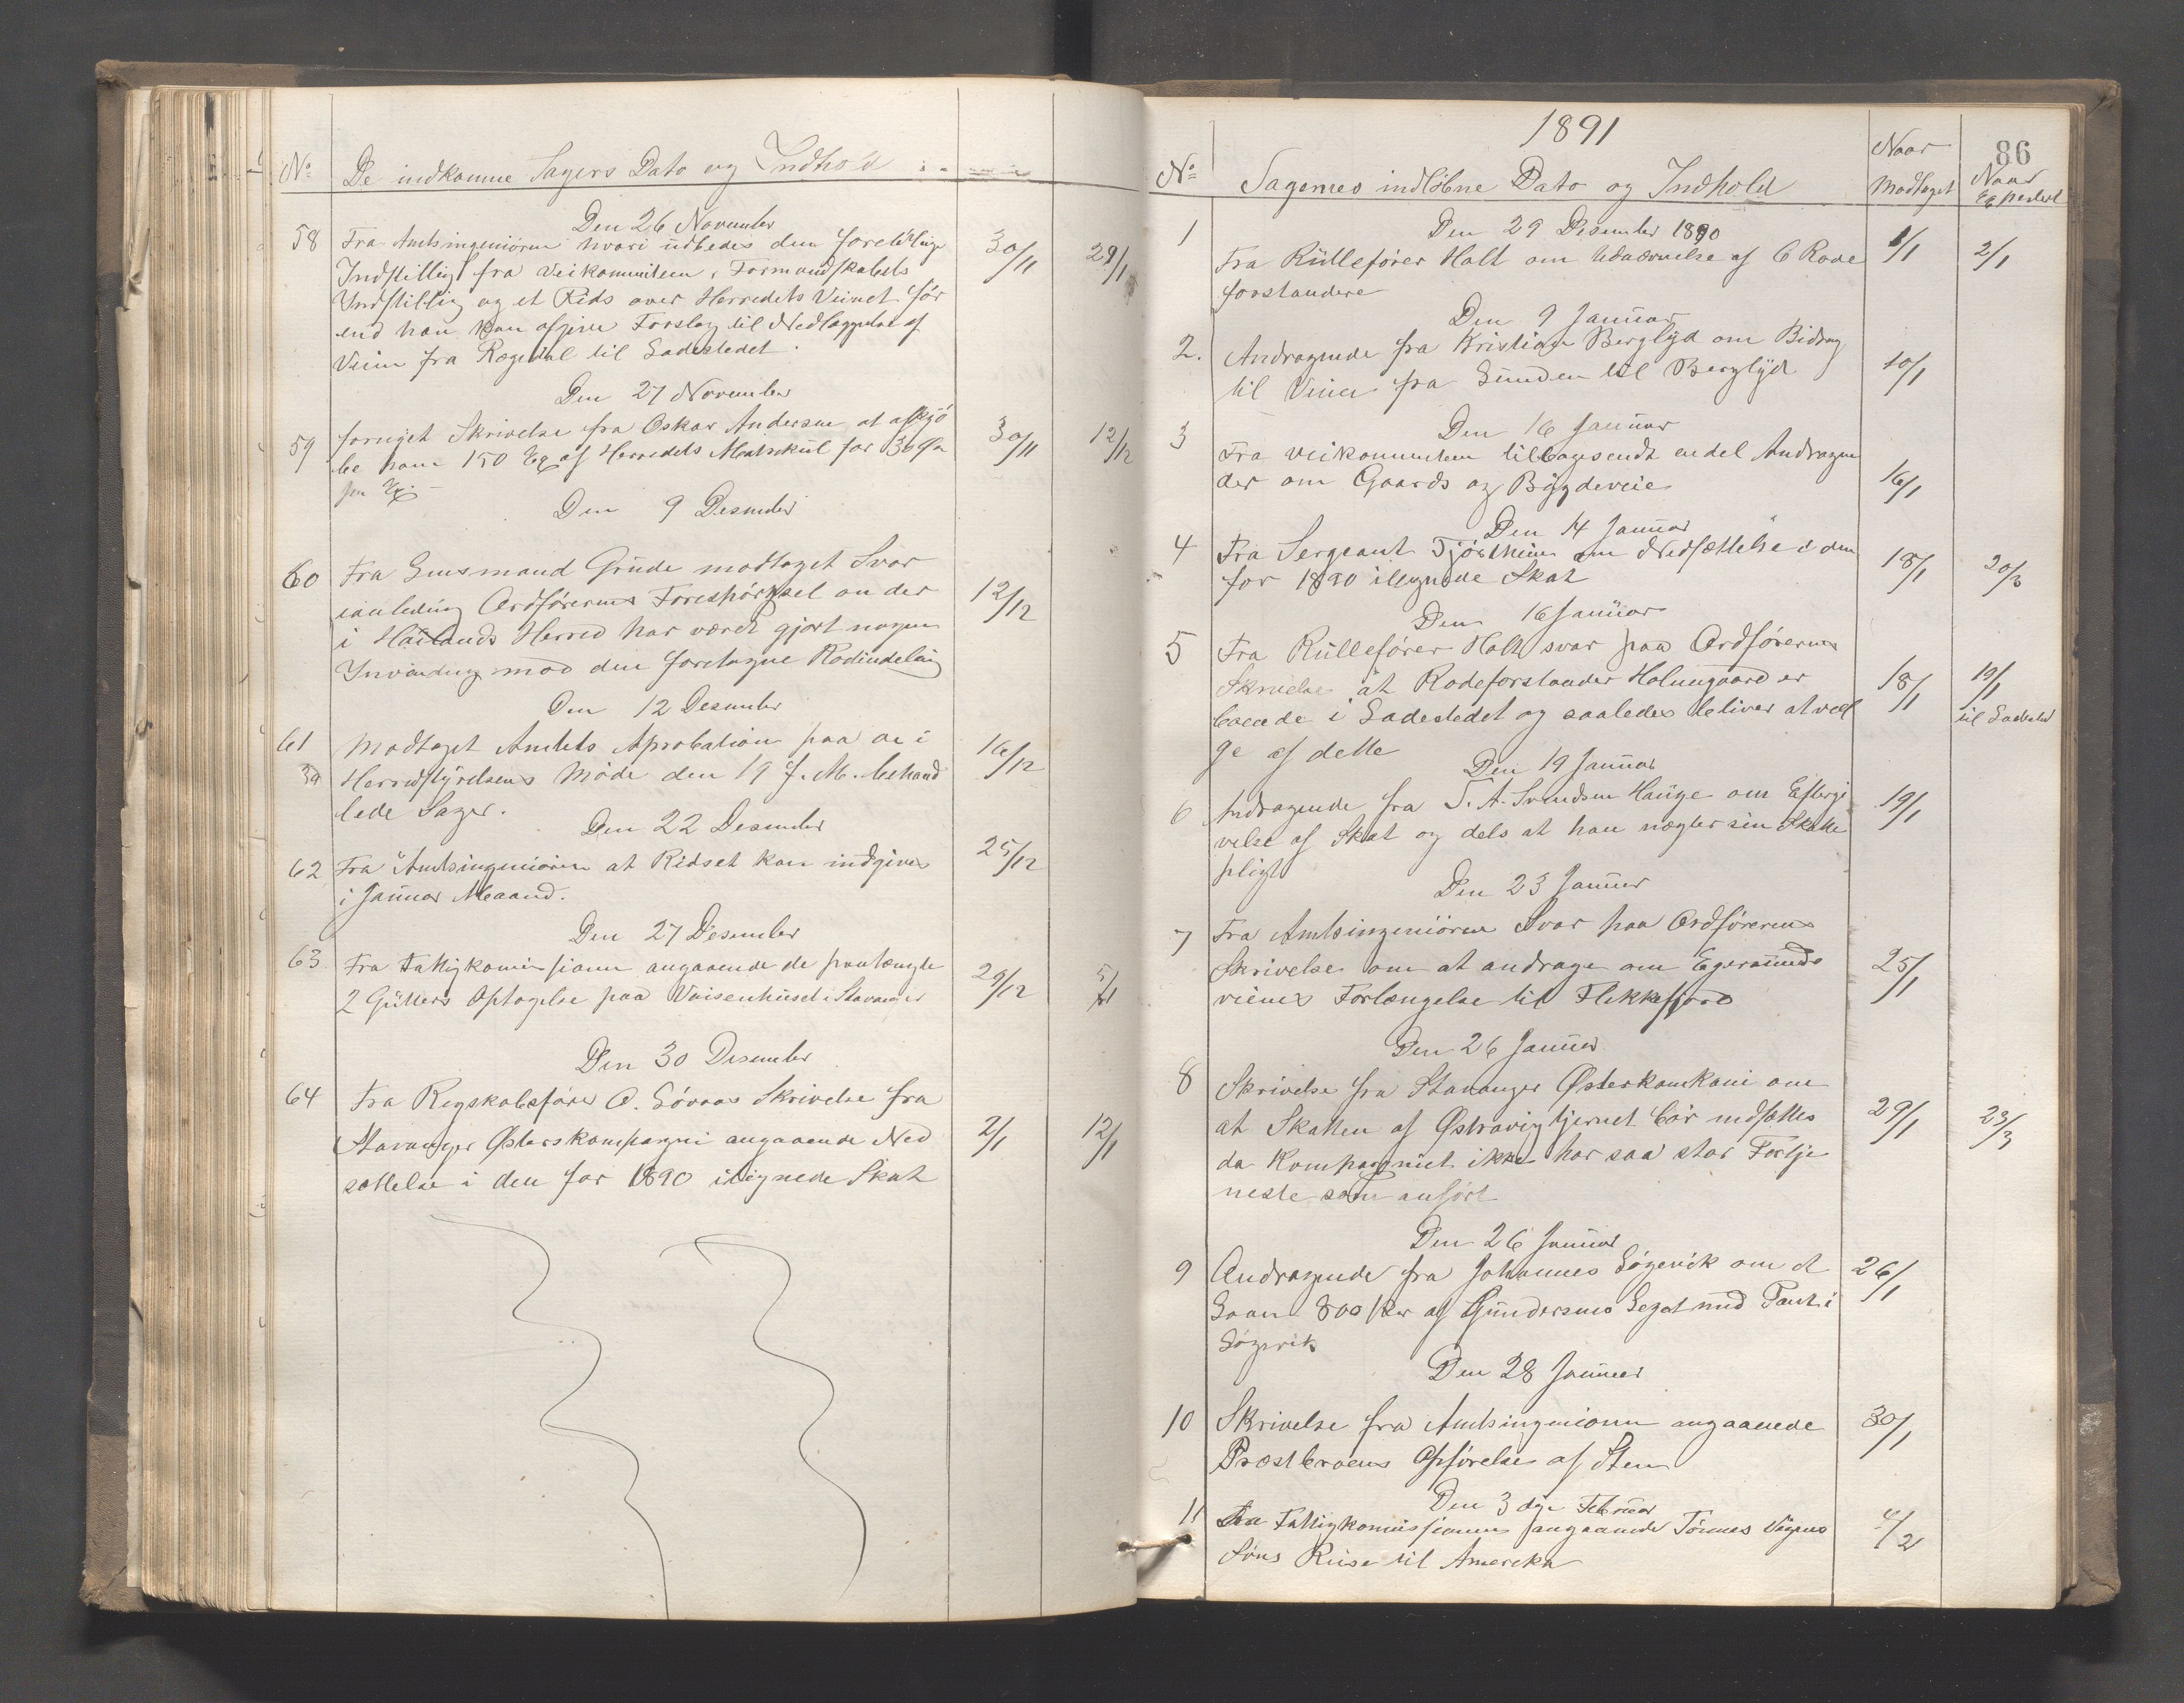 No De indkomne Sagers Dato og Indhold
Den 26 November
58 Fra Amtsingeniøren hvori udbedes den foreløbige 30/11 29/1
Indstillig fra Veikomiteen, Formandskabets
Indstillig og et Rids over Herredets Veinet før
end han kan afgive Forslag til Nedlæggelse af
Veien fra Rægedal til Ladestedet.
Den 27 November
59 fornyet Skrivelse fra Oskar Andersen at afkjö 30/11 12/12
be ham 150 Ex af Herredets Matrikul for 30 Øre
per Ex.
Den 9 Desember
60 Fra Lensmand Grude modtaget Svar
ianleding Ordførerens Forespörgsel om der 12/12
i Haalands Herred har været gjort nogen
Invending mod den foretagne Rodeindeling
Den 12 Desember
61 Modtaget Amtets Aprobation paa de i 16/12
Herredstyrelsens Möde den 19 f. M. behand
lede Sager.
Den 22 Desember
62 Fra Amtsingeniören at Ridset kan indgives 25/12
i Januar Maaned.
Den 27 Desember
63 Fra Fattigkomissionen angaaende de paatængte
2 Gutters Optagelse paa Vaisenhuset i Stavanger 29/12 5/1
Den 30 Desember
64 Fra Regskabsfører O. Løvaas Skrivelse fra
Stavanger Østerskompagni angaaende Ned 2/1 12/1
sættelse i den for 1890 ilignede Skat
1891
86
No Sagernes indløbne Dato og Indhold Naar Modtaget Naar Expederet
Den 29 Desember 1890
1 Fra Rullefører Holt om Udnævnelse af 6 Rode 1/1 2/1
forstandere
Den 9 Januar
2. Andragende fra Kristian Berglyd om Bidrag
til Veien fra Sunden til Berglyd 10/1
Den 16 Januar
3 Fra Veikomiteen tilbagesendt endel Andragen
der om Gaards og Bygdeveie 16/1
Den 14 Januar
4 Fra Sergeant Tjørsheim om Nedsættelse i den 18/1 20/3
for 1890 ilignede Skat
Den 16 Januar
5 Fra Rullefører Holt svar paa Ordførerens
Skrivelse at Rodeforstander Holmgaard er 18/1 19/1
boende i Ladestedet og saaledes bliver at væl til Ladestedet
ge af dette
Den 19 Januar
6 Andragende fra T. A. Svendsen Hauge om Eftergi 19/1
velse af Skat og dels at han nægter sin Skatte
pligt
Den 23 Januar
7 Fra Amtsingeniören Svar paa Ordførerens
Skrivelse om at andrage om Egersunds 25/1
veiens Forlængelse til Flekkefjord
Den 26 Januar
8 Skrivelse fra Stavanger Østerskomkani om
at Skatten af Østravigtjernet bør nedsættes 29/1 23/3
da Kompagniet ikke har saa stor Fortje
neste som anført
Den 26 Januar
9 Andragende fra Johannes Løgevik om et 26/1
Laan 800 Kr af Gundersens Legat med Pant i
Løgevik
Den 28 Januar
10 Skrivelse fra Amtsingeniøren angaaende 30/1
Præstbroens Opførelse af Sten
Den 3 dje Februar
11 Fra Fattigkomissionen angaaende Tønnes 4/2
Søns Reise til Amerika